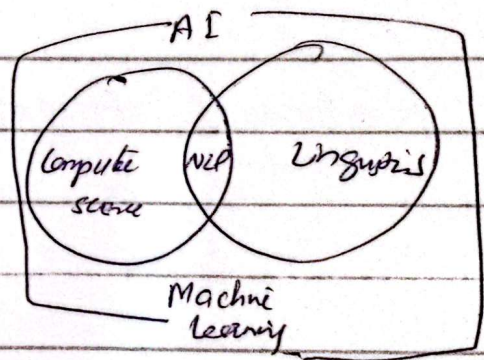 AI
Computer
science
NLP
Linguistics
Machine
Learning